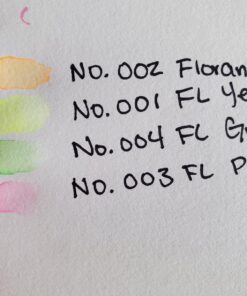 No. 002 Floran
No. 001 FL Ye
No. 004 FL G
No. 003 FL P